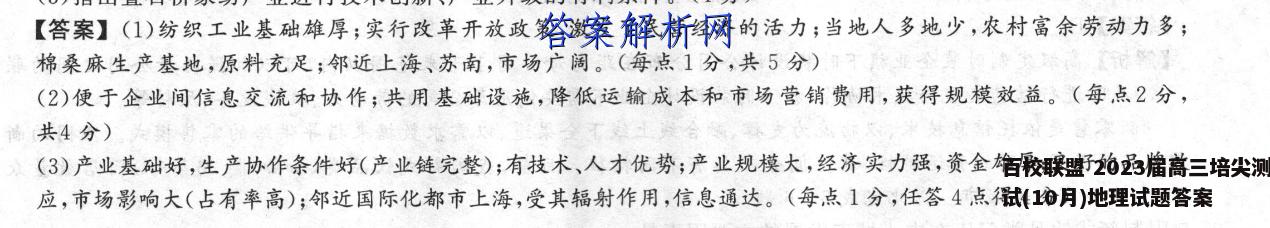 【答案】(1)纺织工业基础雄厚;实行改革开放政策,激发了民营经济的活力;当地人多地少,农村富余劳动力多;
答案解析网
棉桑麻生产基地,原料充足;邻近上海、苏南,市场广阔。(每点1分,共5分)
(2)便于企业间信息交流和协作;共用基础设施,降低运输成本和市场营销费用,获得规模效益。(每点2分,
共4分)
(3)产业基础好,生产协作条件好(产业链完整);有技术、人才优势;产业规模大,经济实力强,资金雄厚
百校联盟 2023届高三培尖测
应,市场影响大(占有率高);邻近国际化都市上海,受其辐射作用,信息通达。(每点1分,任答4点得
试(10月)地理试题答案